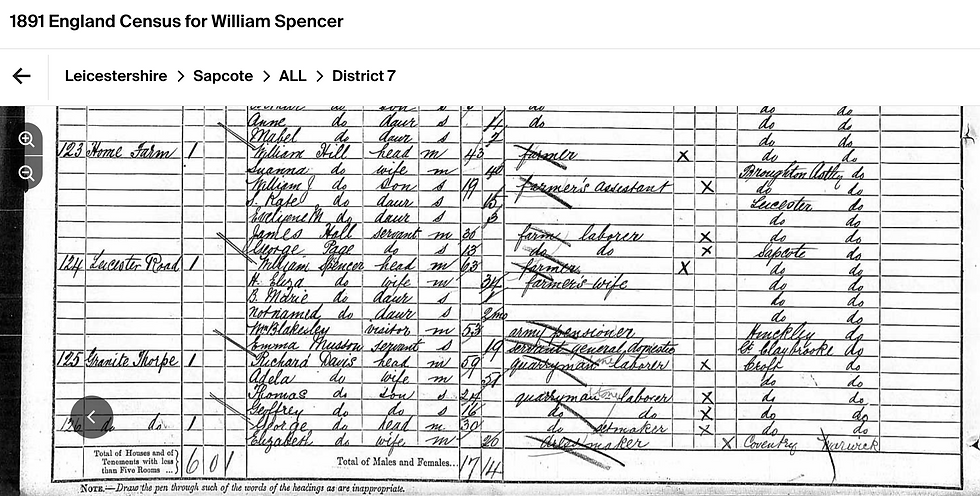 1891 England Census for William Spencer
Leicestershire > Sapcote > ALL > District 7
do son s do do do
Anne do daur s 11 do do do
Mabel do daur s 7 do do
123 Home Farm 1 William Hill head m 43 farmer X do do
Suanna do wife m 40 Broughton Astley do
William J do son s 19 farmer's assistant X do do
S. Kate do daur s 15 Leicester do
Evelyene M do daur s 3 do do
James Hall servant m 30 farm laborer X do do
George Page do s 13 do do X Sapcote do
124 Leicester Road 1 William Spencer head m 63 farmer X do do
H. Eliza do wife m 34 farmer's wife do do
G. Marie do daur s do do
not named do daur s 2mo do do
Wm Blakesley visitor m 53 army pensioner Hinckley do
Emma Musson servant s 19 servant general domestic Gt Claybrooke do
125 Granite Thorpe 1 Richard Davis head m 59 quarryman laborer X Croft do
Adela do wife m 51 do do
Thomas do son s 24 quarryman stone laborer X do do
Geoffrey do do s 16 do do X do do
126 do do 1 George do head m 30 do setmaker X do do
Elizabeth do wife m 20 dressmaker X Coventry Warwick
Total of Houses and of Tenements with less than Five Rooms ... 6 0 1 Total of Males and Females... 17 14
NOTE.—Draw the pen through such of the words of the headings as are inappropriate.